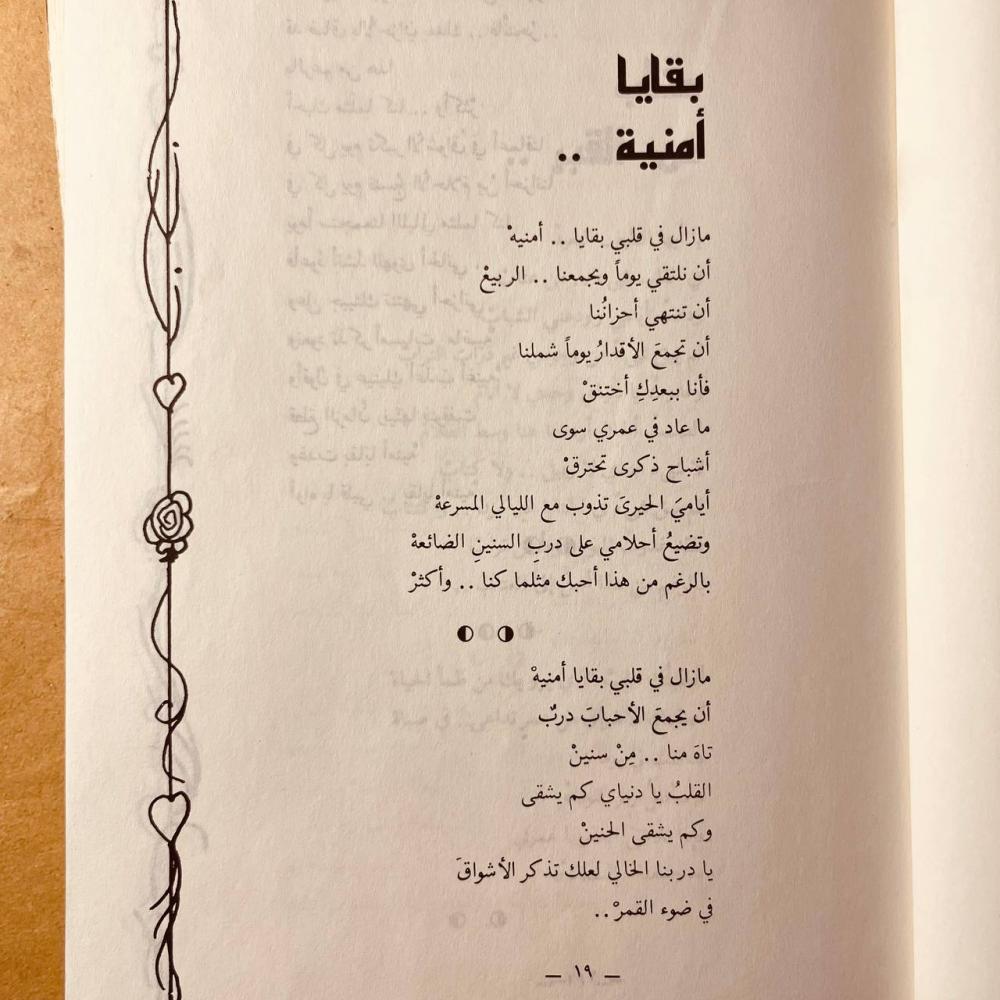 بقايا
أمنية ..
مازال في قلبي بقايا .. أمنيهْ
أن نلتقي يوماً ويجمعنا .. الربيعْ
أن تنتهي أحزانُنا
أن تجمعَ الأقدارُ يوماً شملنا
فأنا ببعدِكِ أختنقْ
ما عاد في عمري سوى
أشباح ذكرى تحترقْ
أياميَ الحيرىَ تذوب مع الليالي المسرعهْ
وتضيعُ أحلامي على دربِ السنينِ الضائعهْ
بالرغم من هذا أحبك مثلما كنا .. وأكثرْ
مازال في قلبي بقايا أمنيهْ
أن يجمعَ الأحبابَ دربٌ
تاهَ منا .. مِنْ سنينْ
القلبُ يا دنياي كم يشقى
وكم يشقى الحنينْ
يا دربنا الخالي لعلك تذكر الأشواقَ
في ضوء القمرْ..
— ١٩ —